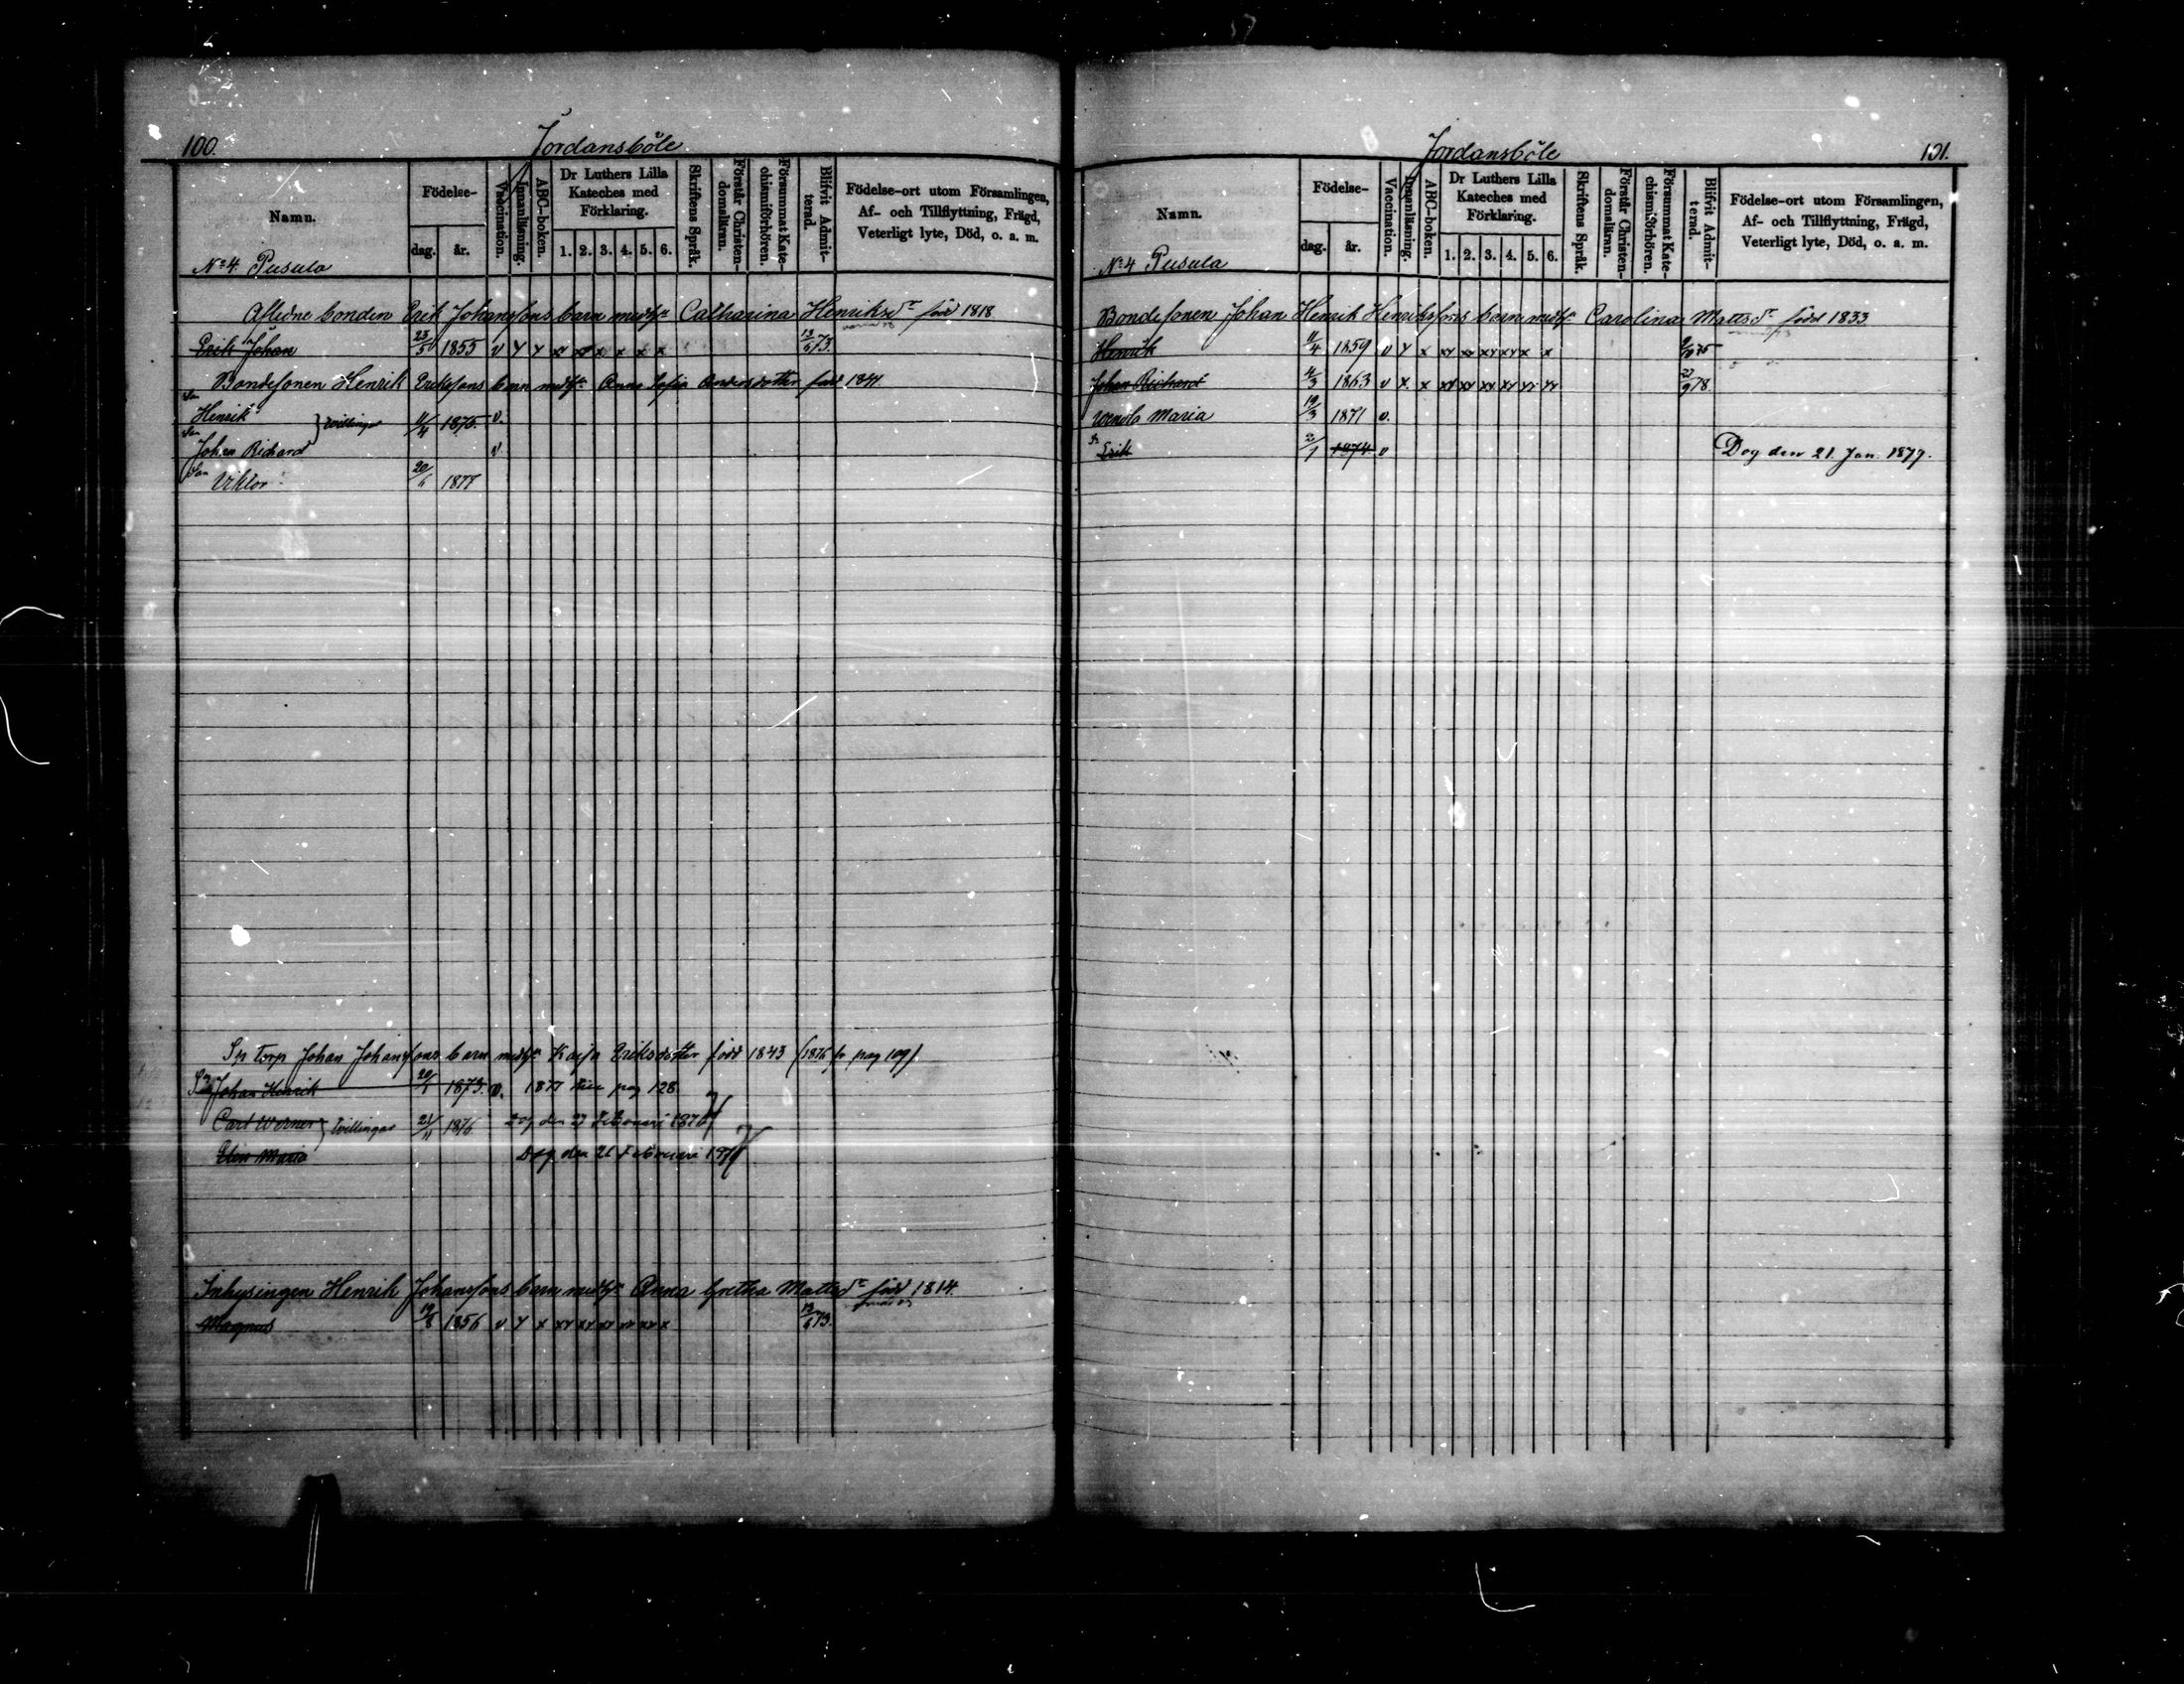 100. Jordansböle
Namn. Födelse- dag. år. Vaccination. Innanläsning. ABC-boken. Dr Luthers Lilla Kateches med Förklaring. 1. 2. 3. 4. 5. 6. Skriftens Språk. Förstår Christendomsläran. Försummat Katechismiförhören. Blifvit Admitterad. Födelse-ort utom Församlingen, Af- och Tillflyttning, Frägd, Veterligt lyte, Död, o. a. m.
No 4. Pusula
Aflidne bonden Erik Johanssons barn med h:u Catharina Henriksdr född 1818
Erik Johan 23/5 1855 v y y xx xx x x x x 13/6 73.
Bondesonen Henrik Erikssons barn med h:u Anna Sofia Andersdotter född 1841
Son Henrik } tvillingar 11/4 1875. v.
Son Johan Richard v
Son Viktor 20/6 1877
Sp torp Johan Johanssons barn med h:u Kajsa Eriksdotter född 1843 (1876 fr pag 109)
Son Johan Henrik 20/1 1873. v. 1877 till pag 128
Carl Werner } tvillingar 21/11 1876 Dog den 27 Februari 187
Elin Maria Dog den 21 Februari 187
Inhysingen Henrik Johanssons barn med h:u Anna Gretha Mattsdr född 1814.
Magnus 19/8 1856 v y x xx xx xx xx xx x 13/6 73.
Jordansböle 101.
Namn. Födelse- dag. år. Vaccination. Innanläsning. ABC-boken. Dr Luthers Lilla Kateches med Förklaring. 1. 2. 3. 4. 5. 6. Skriftens Språk. Förstår Christendomsläran. Försummat Katechismiförhören. Blifvit Admitterad. Födelse-ort utom Församlingen, Af- och Tillflyttning, Frägd, Veterligt lyte, Död, o. a. m.
No 4 Pusula
Bondesonen Johan Henrik Henrikssons barn med h:u Carolina Mattsdr född 1833
Henrik 11/4 1859 v y x xx xx xx xx x x 75
Johan Richard 4/3 1863 v x x xx xx xx xx xx xx 78.
Maria 19/3 1871 v.
Erik 1 1874 v Dog den 21 Jan. 1877.